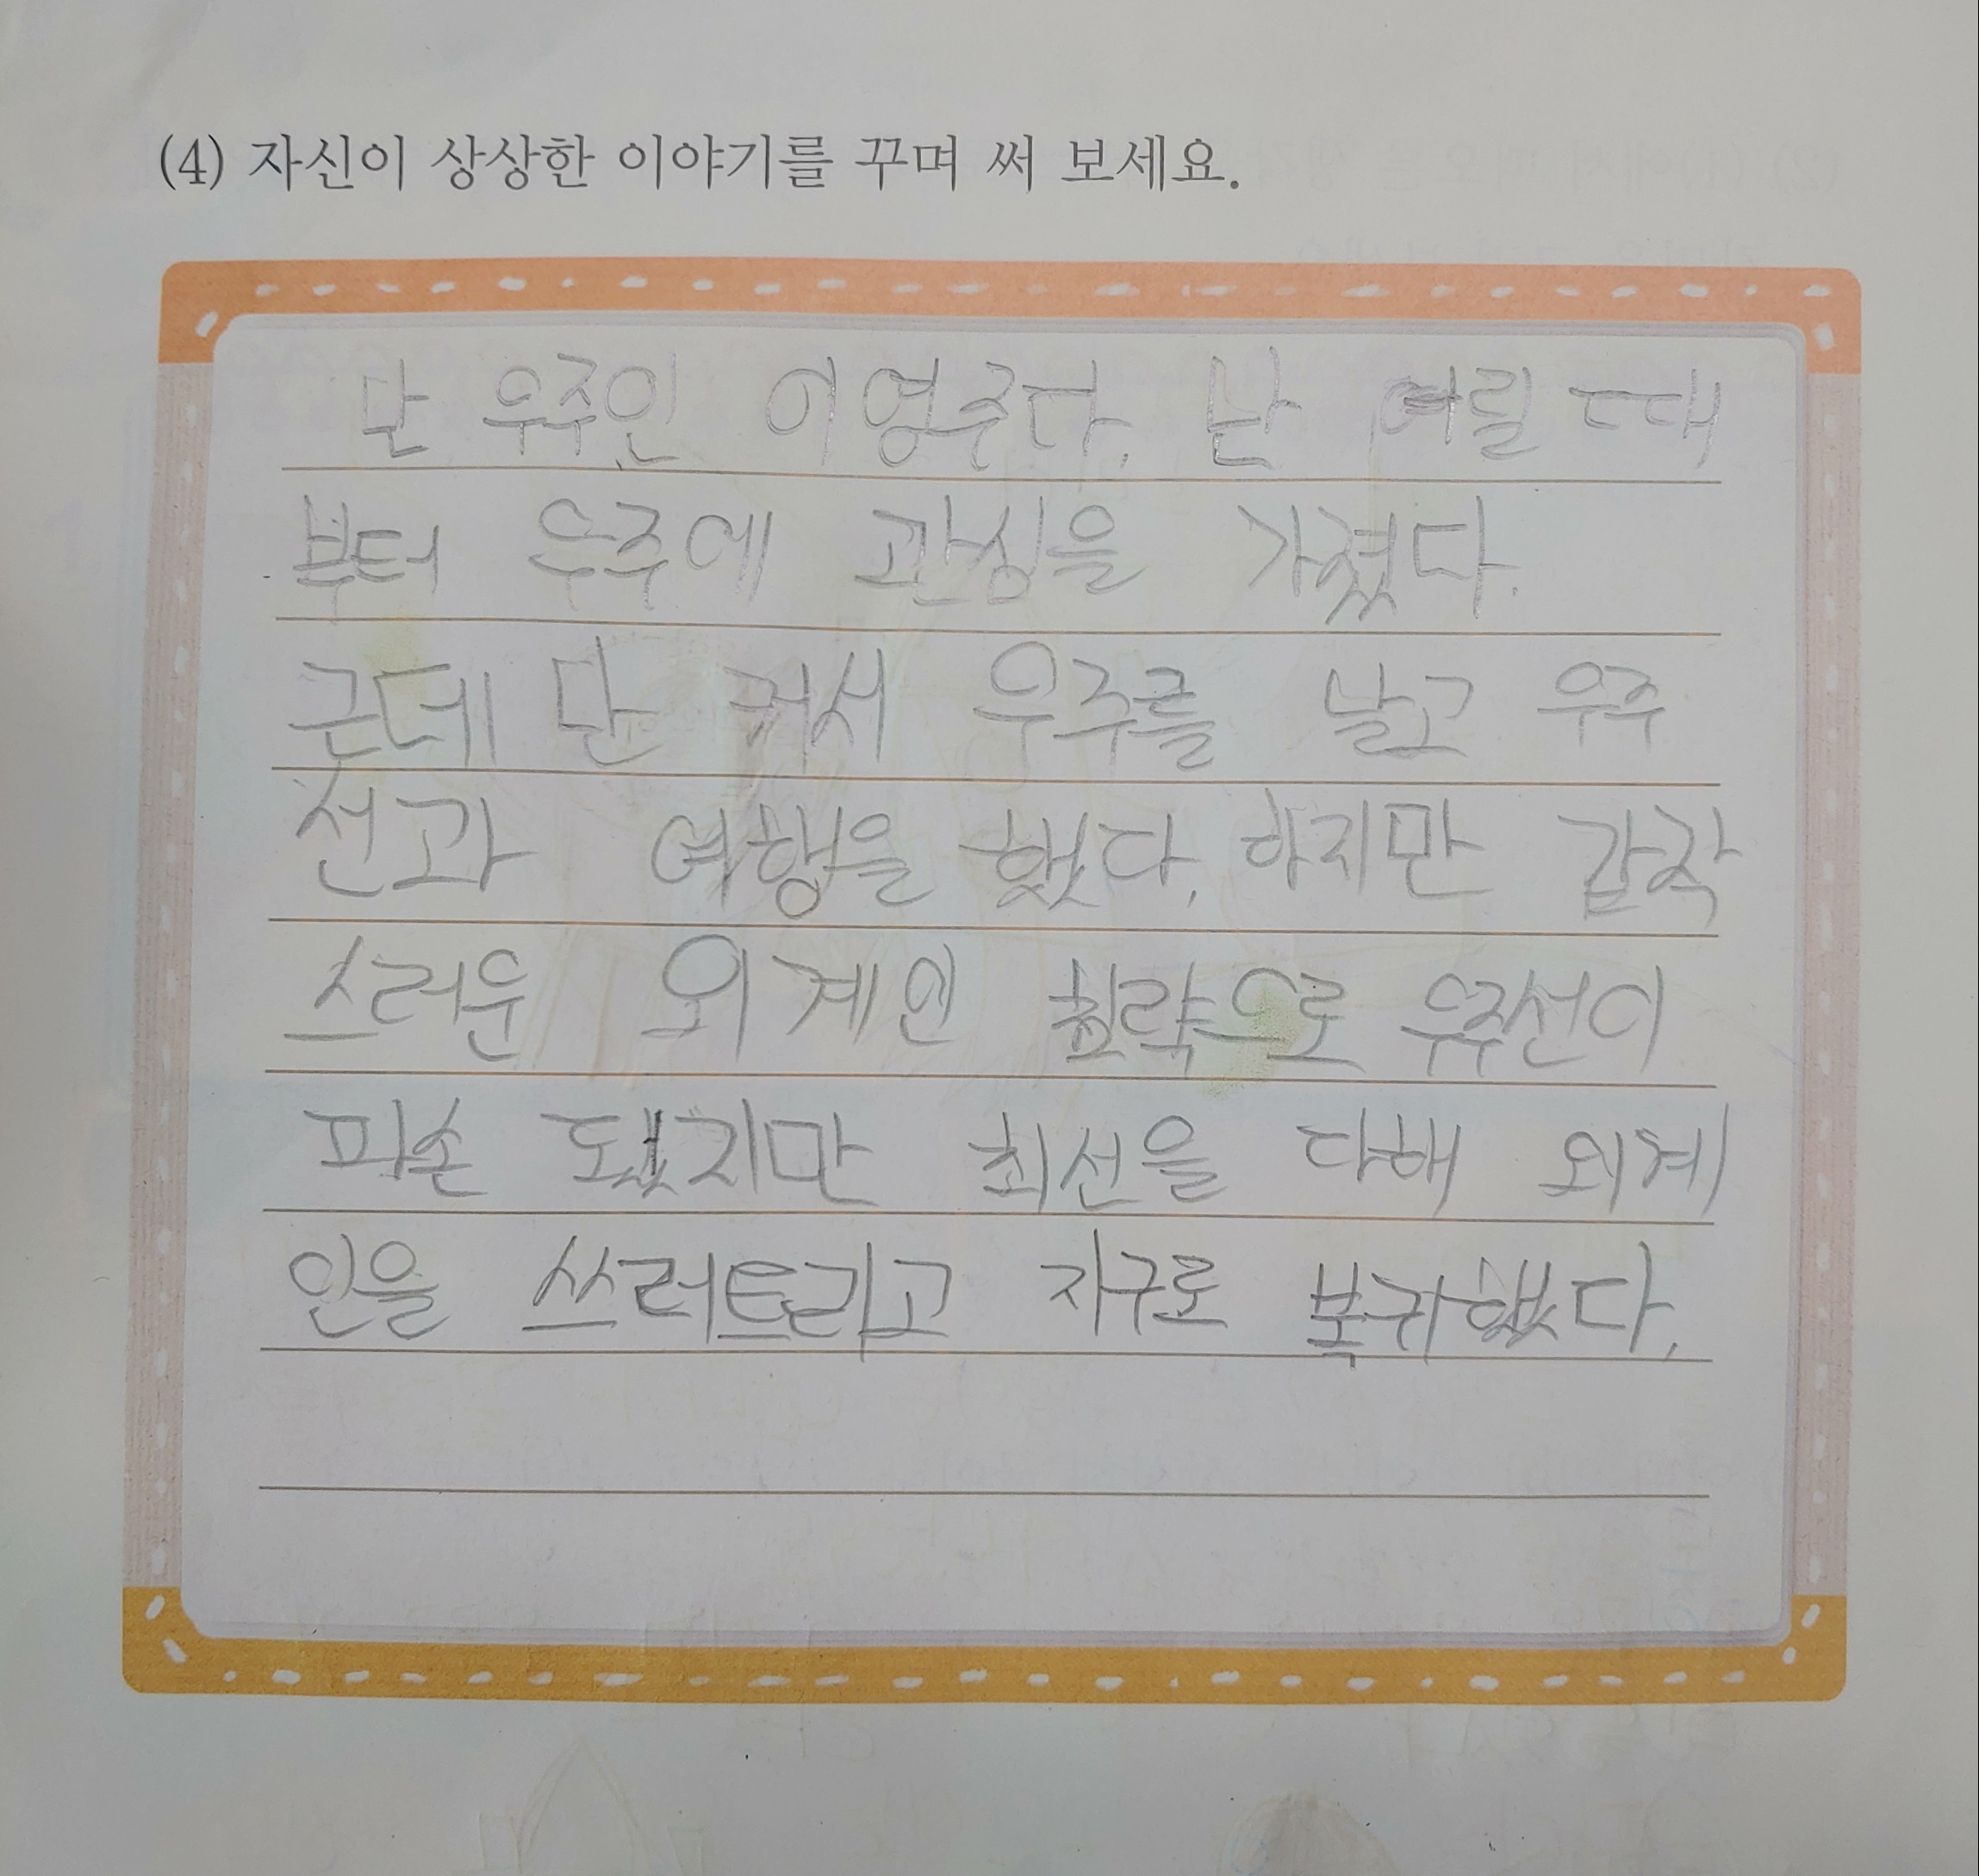 (4) 자신이 상상한 이야기를 꾸며 써 보세요.
난 우주인 이영주다. 난 어릴 때
부터 우주에 관심을 가졌다.
근데 난 커서 우주를 날고 우주
선과 여행을 했다. 하지만 갑작
스러운 외계인 침략으로 우주선이
파손 됐지만 최선을 다해 외계
인을 쓰러트리고 지구로 복귀했다.